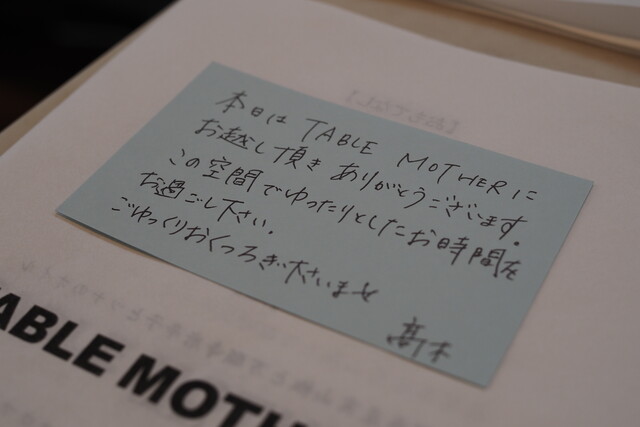 本日は TABLE MOTHERに
お越し頂き ありがとうございます。
この空間でゆったりとしたお時間を
お過ごし下さい。
ごゆっくりおくつろぎ下さいませ
髙木
TABLE MOTH